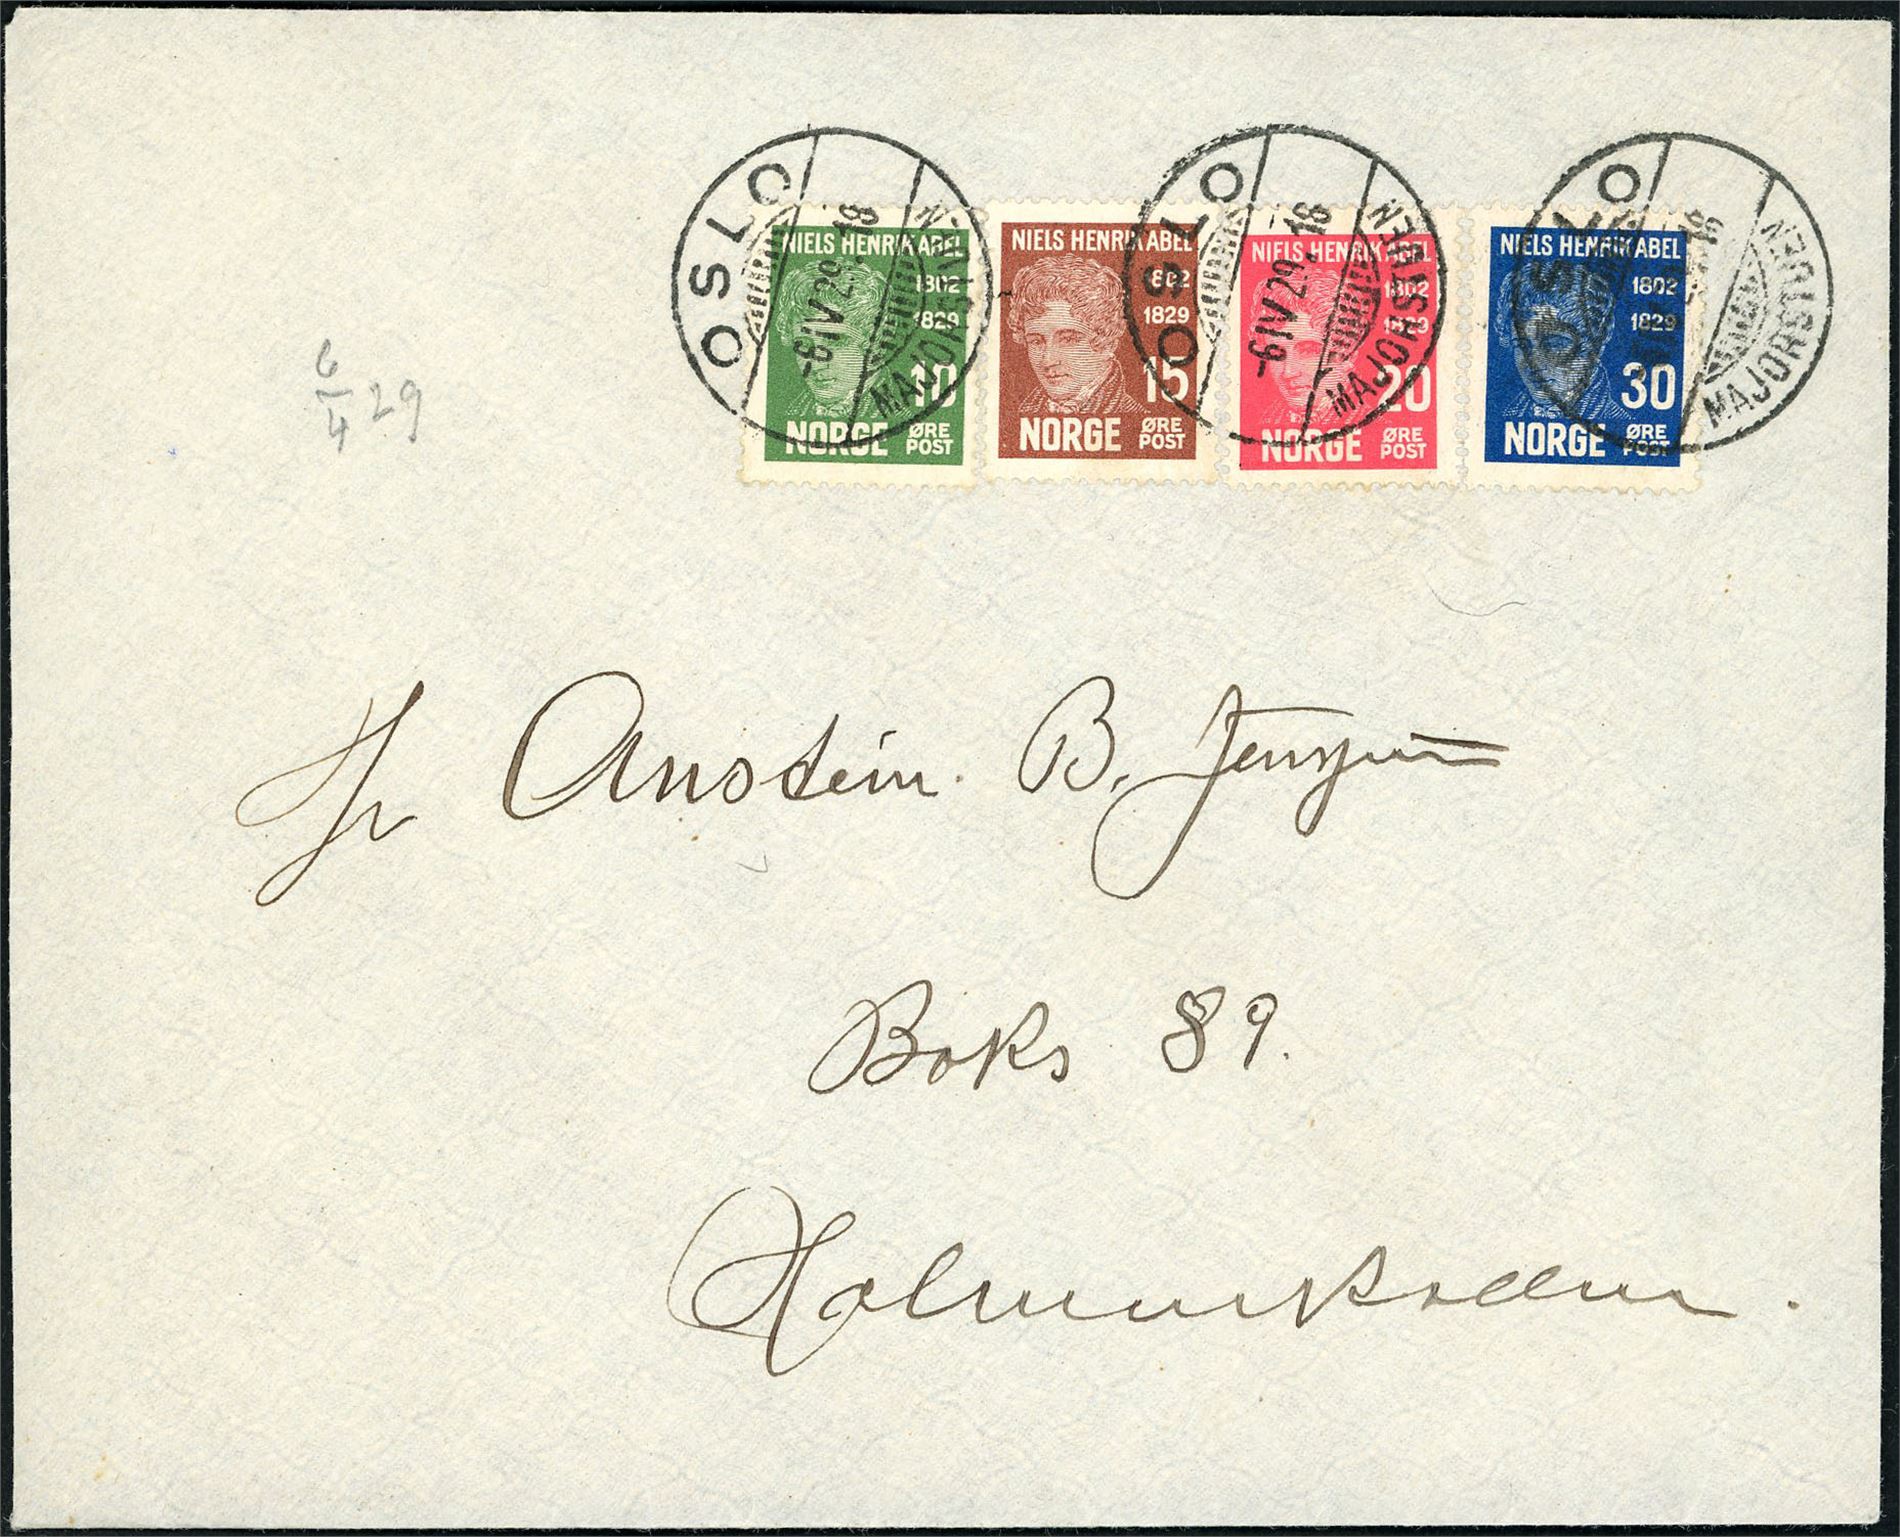 OSLO
-6IV29.18
MAJORSTUEN
OSLO
-6IV29.18
MAJORSTUEN
OSLO
18
MAJORSTUEN
NIELS HENRIK ABEL
1802
1829
10
NORGE ØRE POST
NIELS HENRIK ABEL
1802
1829
15
NORGE ØRE POST
NIELS HENRIK ABEL
1802
1829
20
NORGE ØRE POST
NIELS HENRIK ABEL
1802
1829
30
NORGE ØRE POST
6/4 29
Hr Anstein B. Jenssen
Boks 89.
Holmenkollen.